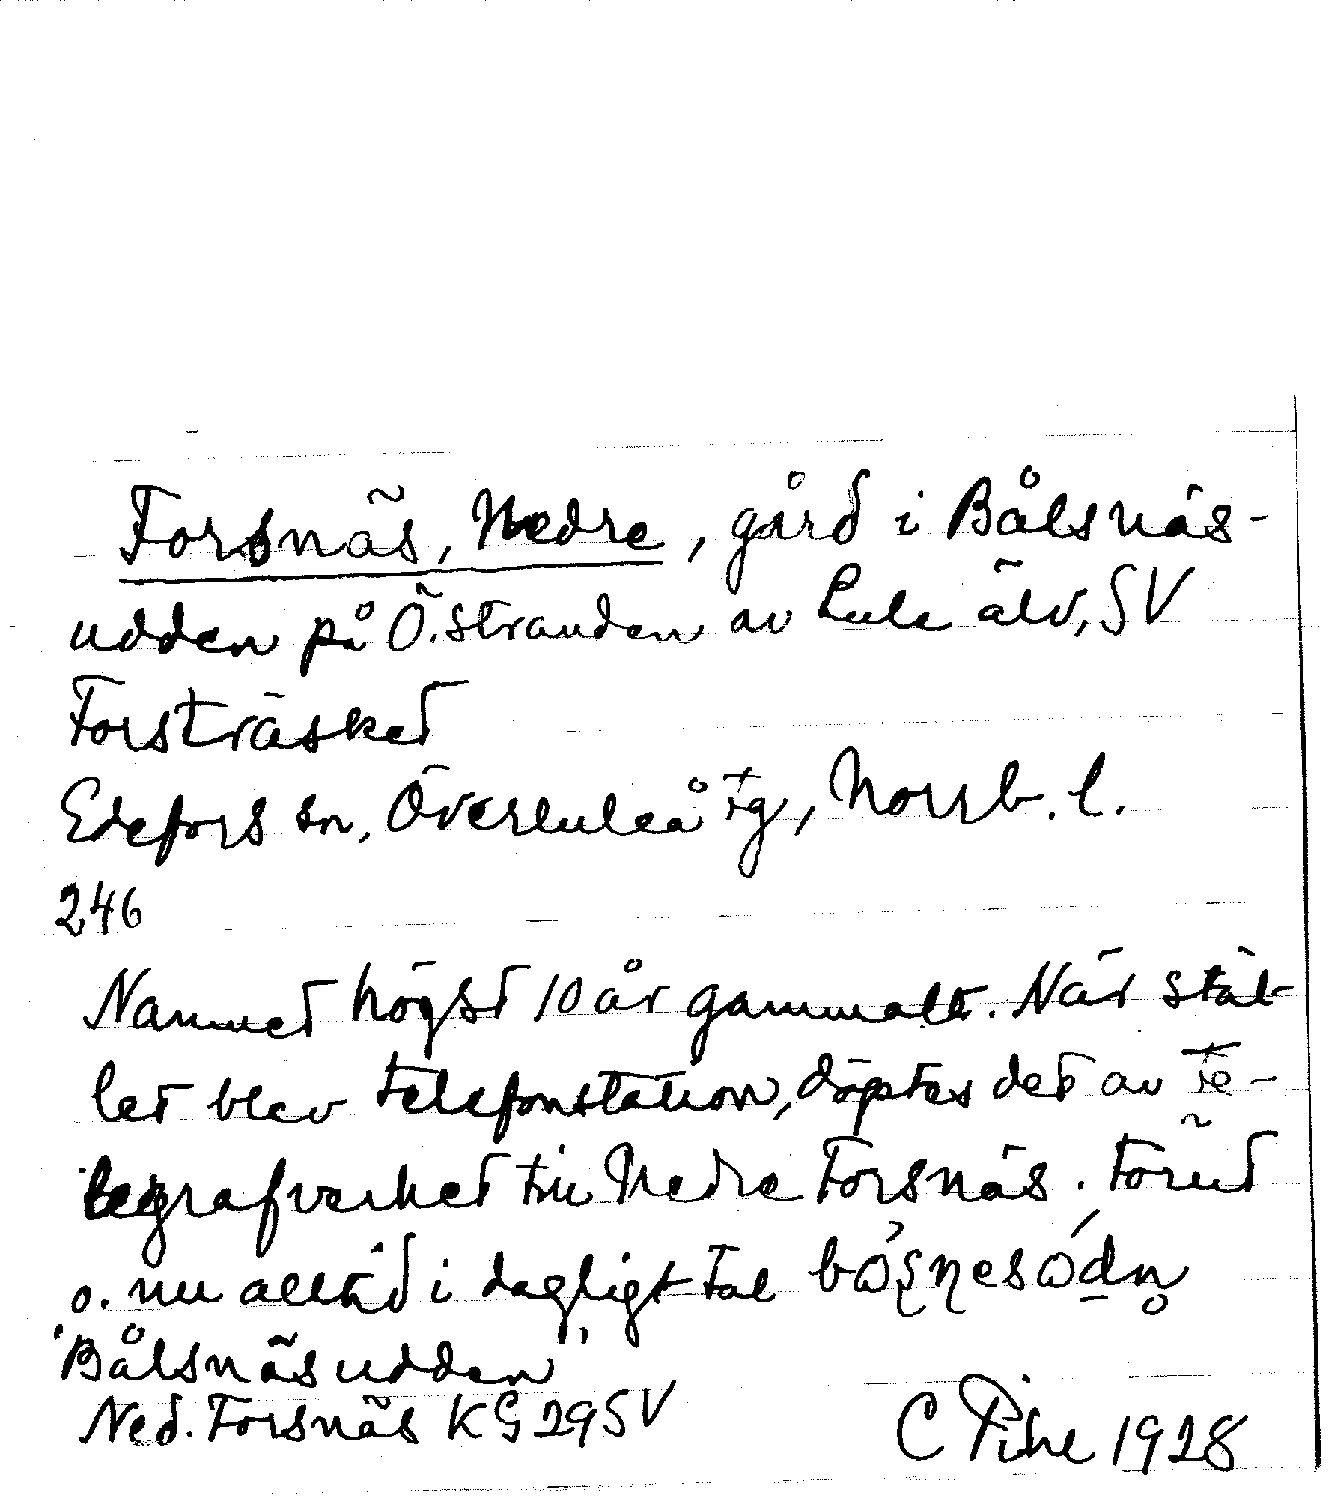 Forsnäs, Nedre, gård i Bålsnäs-
udden på Ö. stranden av Lule älv, SV
Forsträsket
Edefors sn, Överluleå tg, Norrb. l.
246
Namnet högst 10 år gammalt. När stäl-
let blev telefonstation, döptes det av te-
legrafverket till Nedre Forsnäs. Förut
o. nu alltid i dagligt tal
"Bålsnäsudden"
Ned. Forsnäs KG 29 SV
C Pihl 1928